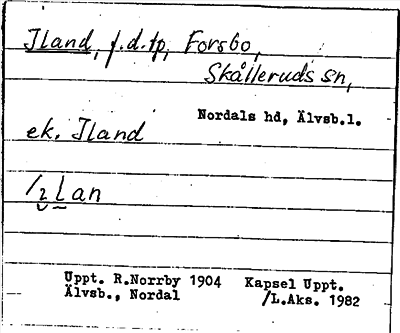 Iland, f.d.tp, Forsbo,
Skålleruds sn,
Nordals hd, Älvsb.l.
ek. Iland
Uppt. R.Norrby 1904 Kapsel Uppt.
Älvsb., Nordal /L.Aks. 1982